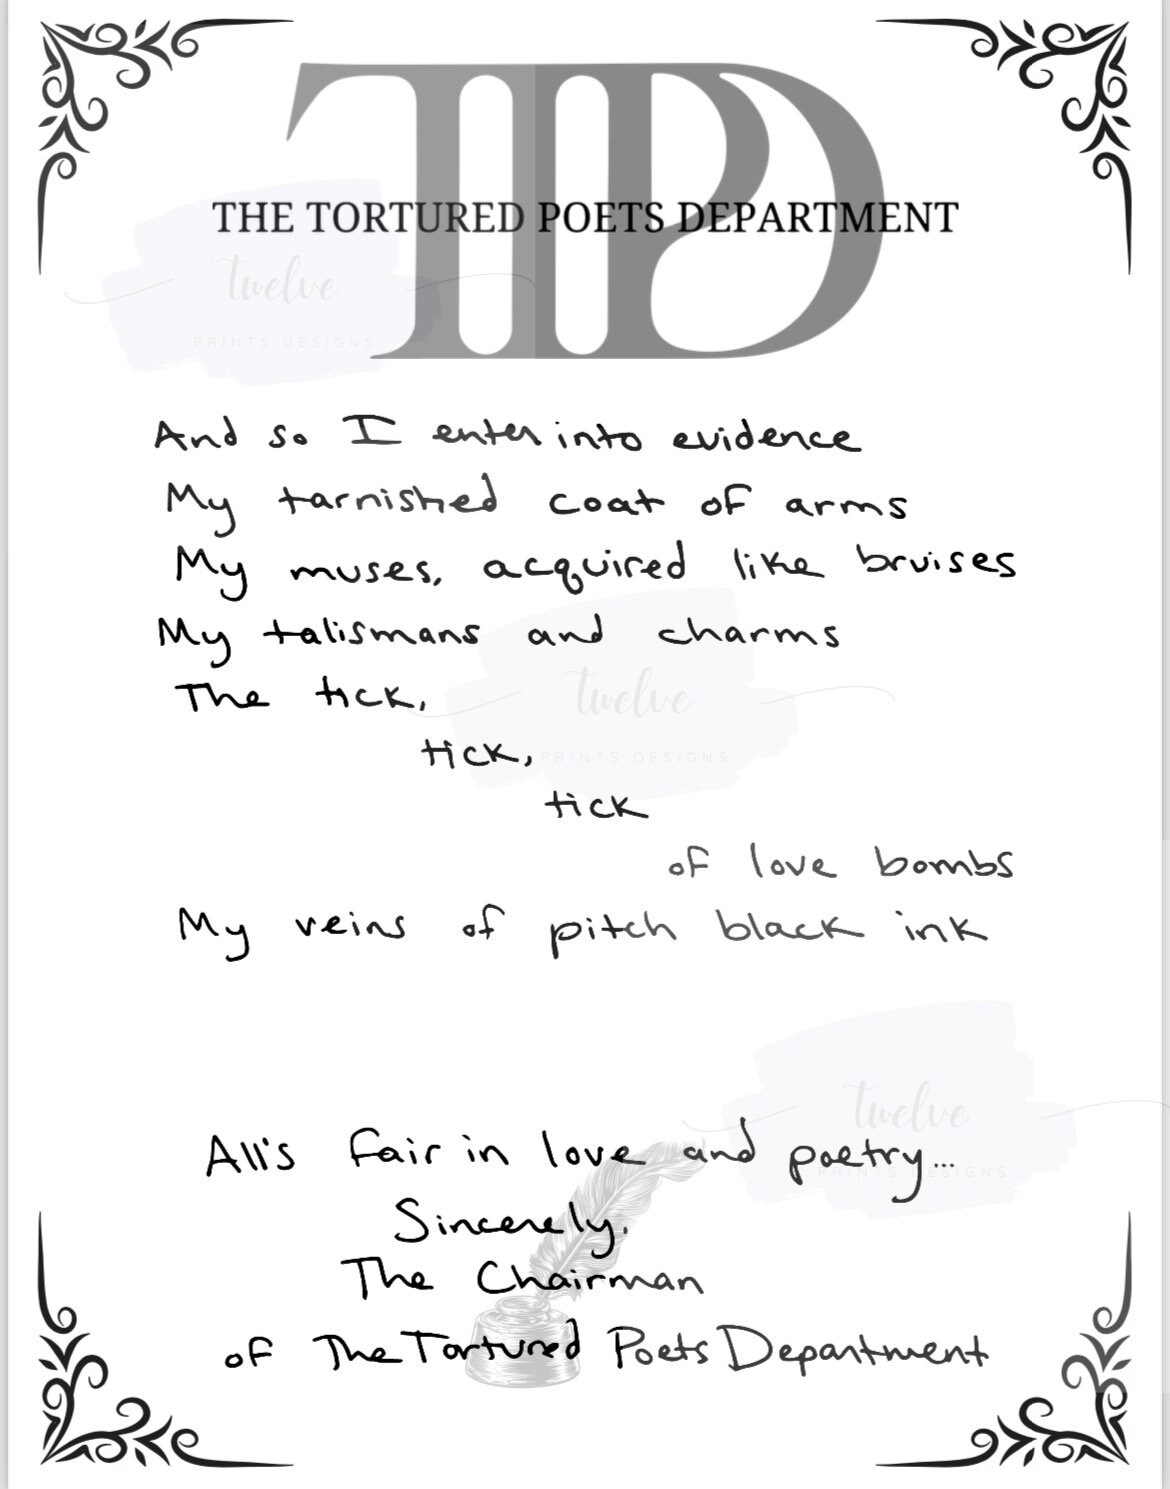 TTPD
THE TORTURED POETS DEPARTMENT
twelve
PRINTS DESIGNS
And so I enter into evidence
My tarnished coat of arms
My muses, acquired like bruises
My talismans and charms
The tick,
tick,
tick
of love bombs
My veins of pitch black ink
twelve
PRINTS DESIGNS
twelve
PRINTS DESIGNS
All's fair in love and poetry...
Sincerely,
The Chairman
of The Tortured Poets Department